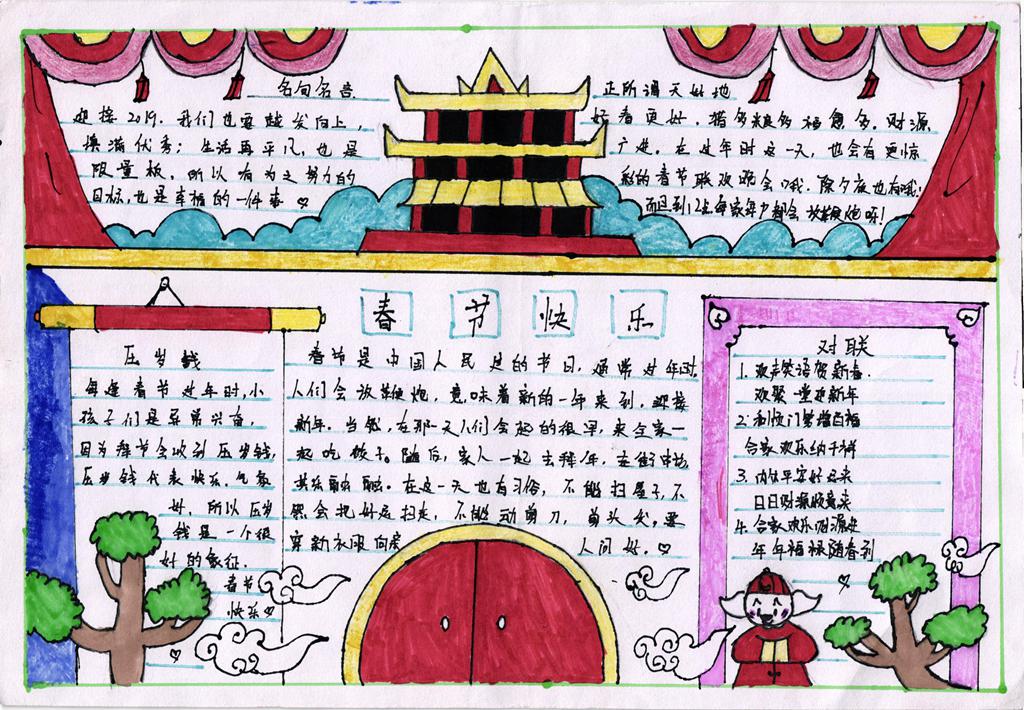 名句名言
迎接2019.我们也要越发向上,
填满优秀;生活再平凡,也是
限量板,所以有为之努力的
目标,也是幸福的一件事
正所谓天好地
好春更好,猪多粮多福多.财源
广进.在过年时这一天,也会有更惊
彩的春节联欢晚会哦.除夕夜也有哦!
而且到12点每家每户都会放鞭炮呀!
春节快乐
压岁钱
每逢春节过年时,小
孩子们是异常兴奋,
因为拜节会收到压岁钱,
压岁钱代表快乐,气氛
好,所以压岁
钱是一个很
好的象征.
春节
快乐
春节是中国人民过的节日,通常过年时
人们会放鞭炮,意味着新的一年来到,迎接
新年.当然,在那一天人们会起的很早,来全家一
起吃饺子.随后,家人一起去拜年,在街中块
其乐融融.在这一天也有习俗,不能扫屋子,不
然会把好运扫走,不能动剪刀,剪头发,要
穿新衣服向家
人问好.
对联
1.欢声笑语贺新春.
欢聚一堂迎新年
2.和顺门第增百福
合家欢乐纳千祥
3.内外平安好运来
日日财源顺意来
4.合家欢乐财源进
年年福禄随春到